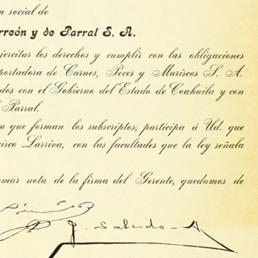 n social de
rreón y de Parral S. A.
ejercitar los derechos y cumplir con las obligaciones
portadora de Carnes, Peces y Mariscos S. A.
dos con el Gobierno del Estado de Coahuila y con
l Parral.
n que forman los subscriptos, participa á Ud. que
cisco Larriva, con las facultades que la ley señala
omar nota de la firma del Gerente, quedamos de